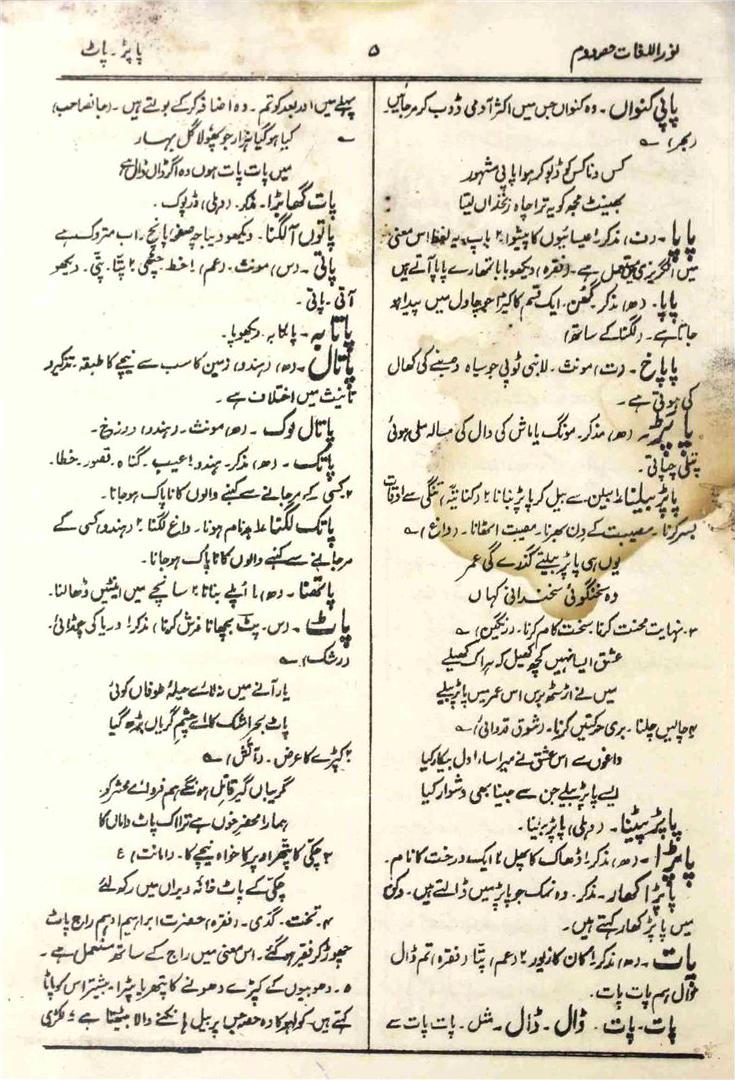 نور اللغات حصہ دوم
۵
پاپڑ۔ پاٹ
پاپی کنواں ۔ وہ کنواں جس میں اکثر آدمی ڈوب کر مر جائیں۔
(بحر) ؎
کس دن اس کو ڈبو کر ہوا پاپی مشہور
بھینٹ مجھ کو یہ ترا چاہ زنخداں لیتا
پاپا ۔ (ن) مذکر۔ ۱ عیسائیوں کا پیشوا۔ ۲ باپ۔ یہ لفظ اس معنی
میں انگریزی میں مستعمل ہے۔ (فقرہ) دیکھو بابا تمھارے پاپا آتے ہیں
پاپا ۔ (ھ) مذکر۔ گھن۔ ایک قسم کا کیڑا جو چاول میں پیدا ہو
جاتا ہے۔ (لگنا کے ساتھ)
پاپاخ ۔ (ت) مونث۔ لانبی ٹوپی جو سیاہ دُنبے کی کھال
کی ہوتی ہے۔
پاپڑ ۔ (ھ) مذکر۔ مونگ یا ماش کی دال کی مسالہ ملی ہوئی
پتلی چپاتی۔
پاپڑ بیلنا ۱ بیلن سے بیل کر پاپڑ بنانا ۲ (کنایتہً) تنگی سے اوقات
بسر کرنا۔ مصیبت کے دن بھرنا۔ مصیبت اٹھانا۔ (داغ) ؎
یوں ہی پاپڑ بیلتے گذرے گی عمر
وہ سخنگوئی سخندانی کہاں
۳۔ نہایت محنت کرنا۔ سخت کام کرنا۔ (رنگین) ؎
عشق ایسا نہیں کچھ کھیل کہ ہر اک کھیلے
میں نے اڑسٹھ برس اس عمر میں پاپڑ بیلے
۴ چالیں چلنا۔ بری حرکتیں کرنا۔ (شوق قدوائی) ؎
داغوں سے اس عشق نے میرا سارا دل بیکار کیا
ایسے پاپڑ بیلے جن سے جینا بھی دشوار کیا
پاپڑ پیٹنا ۔ (دہلی) پاپڑ بیلنا۔
پاپڑا ۔ (ھ) مذکر۔ ۱ ڈھاک کا پھل ۲ ایک درخت کا نام۔
پاپڑا کھار ۔ مذکر۔ وہ نمک جو پاپڑ میں ڈالتے ہیں۔ دکن
میں پاپڑ کھار کہتے ہیں۔
پات ۔ (ھ) مذکر۔ ۱ کان کا زیور ۲ (عم) پتّا (فقرہ) تم ڈال
ڈال ہم پات پات۔
پات۔ پات۔ ڈال۔ ڈال۔ مثل۔ پات پات سے
پہلے میں اور بعد کو تم۔ وہ اضافہ کر کے بولتے ہیں۔ (جانصاحب)
؎ کیا ہو گیا ہزار جو پھولا گل بہار
میں پات پات ہوں وہ اگر ڈال ڈال ہے
پات گھابڑا ۔ مذکر۔ (دہلی) ڈرپوک۔
پاتوں آ لگنا ۔ دیکھو دیباچہ صفحہ پانچ۔ اب متروک ہے
پاتی ۔ (س) مونث۔ (عم) ۱ خط۔ چٹھی ۲ پتّا۔ پتّی۔ دیکھو
آتی۔ پاتی۔
پاتابہ ۔ پائتابہ۔ دیکھو پا۔
پاتال ۔ (ھ) (ہندو) زمین کا سب سے نیچے کا طبقہ۔ تذکیر و
تانیث میں اختلاف ہے۔
پاتال لوک ۔ (ھ) مونث۔ (ہندو) دوزخ۔
پاتک ۔ (ھ) مذکر۔ ہندو ۱ عیب۔ گناہ۔ قصور۔ خطا۔
۲ کسی کے مر جانے سے کنبے والوں کا ناپاک ہو جانا۔
پاتک لگنا ۱ بدنام ہونا۔ داغ لگنا ۲ (ہندو) کسی کے
مر جانے سے کنبے والوں کا ناپاک ہو جانا۔
پاتھنا ۔ (ھ) ۱ اُپلے بنانا ۲ سانچے میں اینٹیں ڈھالنا۔
پاٹ ۔ (س۔ پٹ بچھانا فرش کرنا) مذکر ۱ دریا کی چوڑائی۔
(رشک) ؎
یار آنے میں نہ لائے حیلۂ طوفاں کوئی
پاٹ بحر اشک کا اے چشم گریاں بڑھ گیا
۲ کپڑے کا عرض۔ (آتش) ؎
گریباں گیر قاتل ہو نگے ہم فردائے محشر کو
ہمارا محضر خوں ہے ترا اک پاٹ داماں کا
۳ چکّی کا پتھر اوپر کا خواہ نیچے کا۔ (امانت) ع
چکّی کے پاٹ خانۂ ویراں میں رکھ لئے
۴۔ تخت۔ گدّی۔ (فقرہ) حضرت ابراہیم ادہم راج پاٹ
چھوڑ کر فقیر ہو گئے۔ اس معنی میں راج کے ساتھ مستعمل ہے۔
۵۔ دھوبیوں کے کپڑے دھونے کا پتھر یا پٹرا۔ بیشتر اس کو پاٹا
کہتے ہیں۔ کولہو کا وہ حصہ جس پر بیل ہانکنے والا بیٹھتا ہے ۶ لکڑی